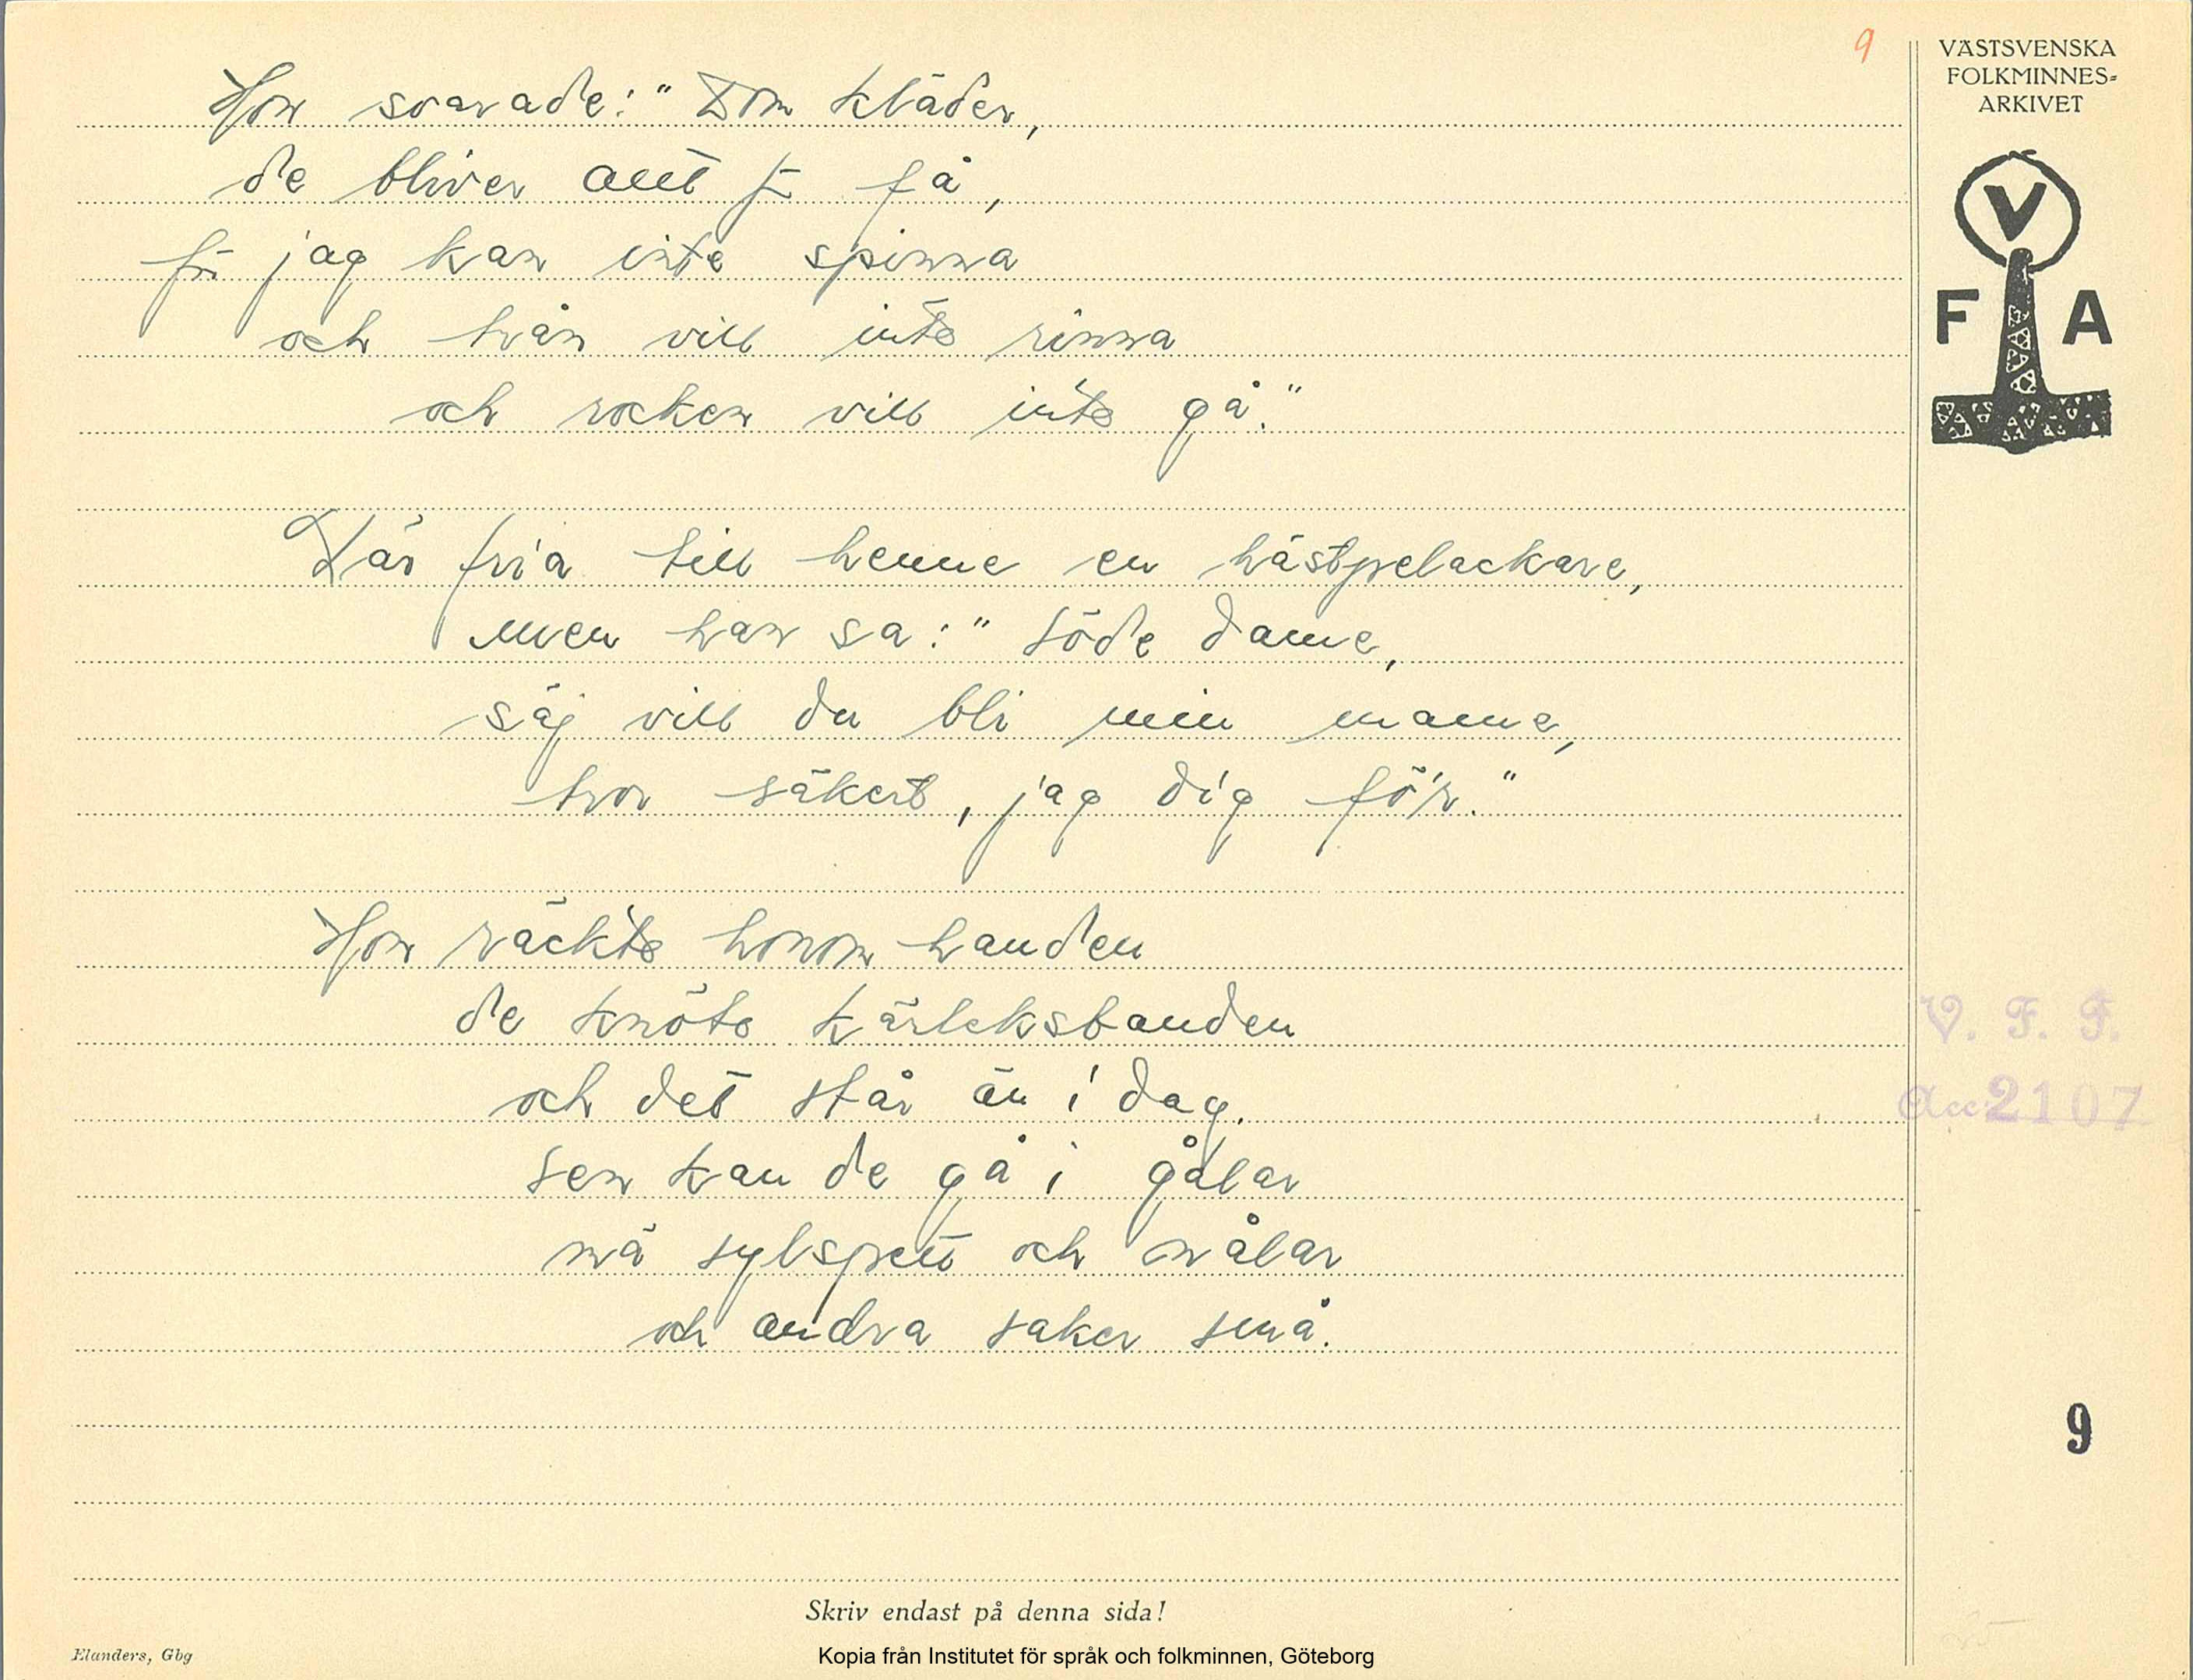 9
VÄSTSVENSKA
FOLKMINNES-
ARKIVET
V
F A
Hon svarade: "Dom kläder,
de bliver allt för få,
för jag kan inte spinna
och trån vill inte rinna
och rocken vill inte gå."
Där fria till henne en hästpelackare,
men han sa: "söde dame,
säj vill du bli min mame,
tror säkert, jag dig för."
Hon räckte honom handen
de knöto kärleksbanden
och det står än i dag.
sen kan de gå i gålar
mä sylspett och nålar
och andra saker små.
V. F. F.
Acc 2107
9
Skriv endast på denna sida!
Elanders, Gbg
Kopia från Institutet för språk och folkminnen, Göteborg